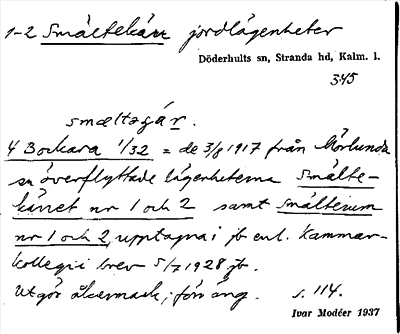 1-2 Småltekärr jordlägenheter
Döderhults sn, Stranda hd, Kalm. l.
345
smæltǝɡár.
4 Bockara 1/32 = de 3/8 1917 från Mörlunda
sn överflyttade lägenheterna Smålte-
kärret nr 1 och 2 samt Smålterum
nr 1 och 2, upptagna i jb enl. Kammar-
kollegii brev 5/7 1928 jb.
Utgör åkermark; förr äng. s. 114.
Ivar Modéer 1937